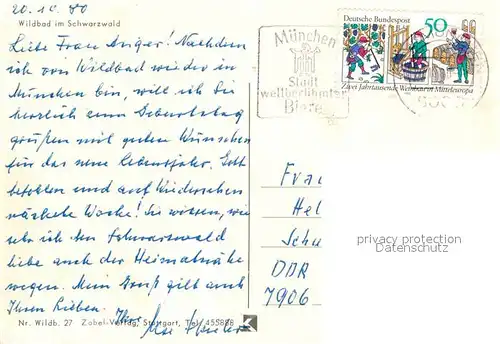 20.10.80
Wildbad im Schwarzwald
Liebe Frau Anger! Nachdem
ich von Wildbad wieder in
München bin, will ich Sie
herzlich zum Geburtstag
grüßen mit guten Wünschen
für das neue Lebensjahr. Gott
befohlen und auf Wiedersehen
nächste Woche! Sie wissen, wie
sehr ich den Schwarzwald
liebe auch der Heimatnähe
wegen. Mein Gruß gilt auch
Ihren Lieben. Ihre
Nr. Wildb. 27 Zobel-Verlag, Stuttgart, Tel. 455888
München
Stadt
weltberühmter
Biere
Deutsche Bundespost 50
Zwei Jahrtausende Weinbau in Mitteleuropa
Frau
Hel
Schu
DDR
7906
privacy protection
Datenschutz